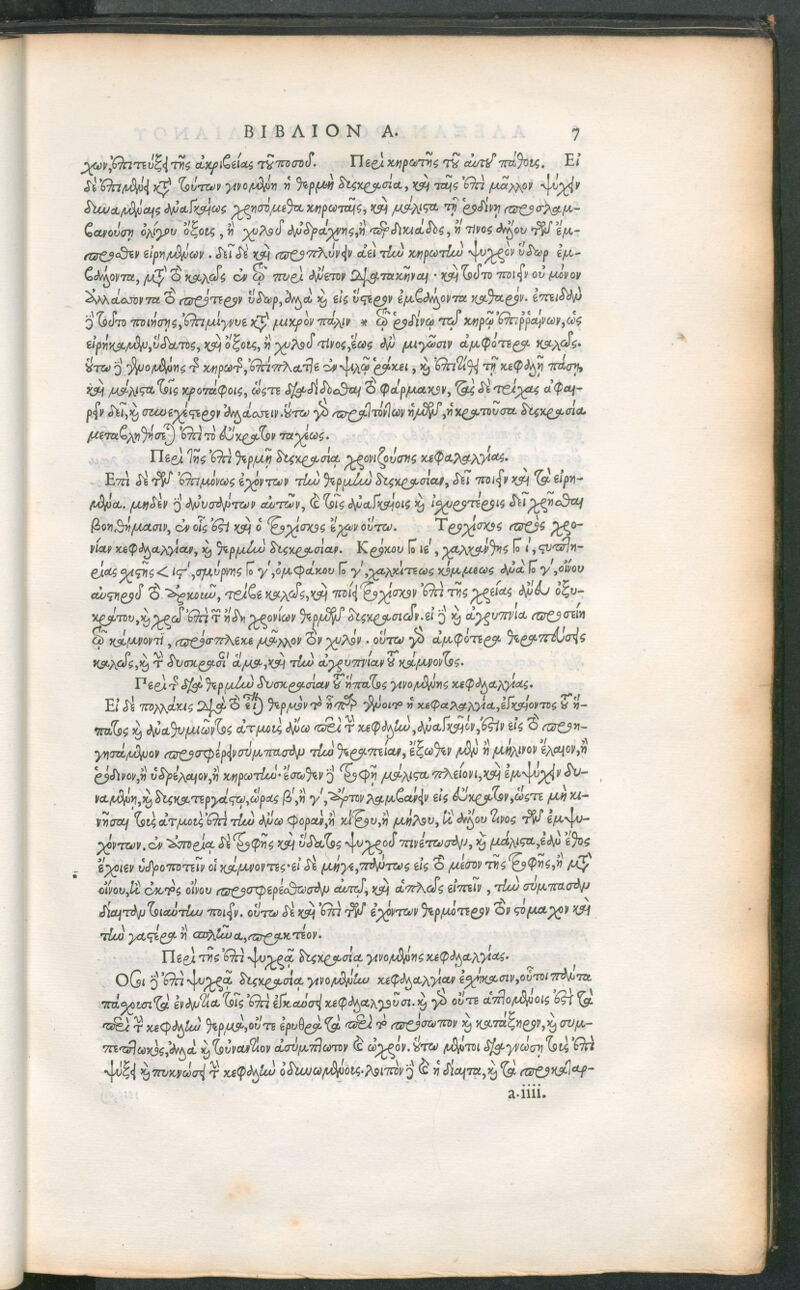 ΒΙΒΛΙΟΝ Α. 7
χων, ἐπιτεύξῃ τῆς ἀκριβείας τοῦ ποσοῦ. Περὶ κηρωτῆς τοῦ αὐτοῦ πάθους. Εἰ
δὲ ἐπιμένῃ καὶ τούτων γινομένων ἡ θερμὴ δυσκρασία, καὶ ταῖς ἐπὶ μᾶλλον ψύχειν
δυναμέναις ἀναγκαίως χρησόμεθα κηρωταῖς, καὶ μάλιστα τῇ ῥοδίνῃ προσλαμ-
βανούσῃ ὀλίγου ὄξους, ἢ χυλοῦ ἀνδράχνης, ἢ περδικιάδος, ἤ τινος ἄλλου τῶν ἔμ-
προσθεν εἰρημένων. δεῖ δὲ καὶ προπλύνειν ἀεὶ τὴν κηρωτὴν ψυχρὸν ὕδωρ ἐμ-
βάλλοντα, μετὰ τὸ καλῶς ἐν τῷ πυρὶ ἄνετον διατακῆναι. καὶ τοῦτο ποιεῖν οὐ μόνον
ἀλλάσσοντα τὸ πρότερον ὕδωρ, ἀλλὰ καὶ εἰς ὕστερον ἐμβάλλοντα καθαρόν. ἐπειδὰν
δὲ τοῦτο ποιήσῃς, ἐπιμίγνυε κατὰ μικρὸν πάλιν * τῷ ῥοδίνῳ τῷ κηρῷ ἐπιῤῥαίνων, ὡς
εἰρήκαμεν, ὕδατος, καὶ ὄξους, ἢ χυλοῦ τινος, ἕως ἂν μιγῶσιν ἀμφότερα καλῶς.
οὕτω δὲ γενομένης τῆς κηρωτῆς, ἐπίπλαττε ἐν ψιλῷ ῥάκει, καὶ ἐπιτίθει τῇ κεφαλῇ πάσῃ,
καὶ μάλιστα τοῖς κροτάφοις, ὥστε διαδίδοσθαι τὸ φάρμακον, τὰς δὲ τρίχας ἀφαι-
ρεῖν δεῖ, καὶ συνεχέστερον ἀλλάσσειν. οὕτω γὰρ πραττόντων ἡμῶν, ἡ κρατοῦσα δυσκρασία
μεταβληθήσεται ἐπὶ τὸ εὔκρατον ταχέως.
Περὶ τῆς ἐπὶ θερμῇ δυσκρασίᾳ χρονιζούσης κεφαλαλγίας.
Ἐπὶ δὲ τῶν ἐπιμόνως ἐχόντων τὴν θερμὴν δυσκρασίαν, δεῖ ποιεῖν καὶ τὰ εἰρη-
μένα. μηδὲν δὲ ἀνυσάντων αὐτῶν, καὶ τοῖς ἀναγκαίοις καὶ ἰσχυροτέροις δεῖ χρῆσθαι
βοηθήμασιν, ἐν οἷς ἐστι καὶ ὁ τροχίσκος ἔχων οὕτω. Τροχίσκος πρὸς χρο-
νίαν κεφαλαλγίαν, καὶ θερμὴν δυσκρασίαν. Κρόκου Γο ιε΄, χαλκάνθης Γο ί, στυπτη-
ρίας σχιστῆς < ις΄, σμύρνης Γο γ΄, ὀμφάκου Γο γ΄, χαλκίτεως κόμμεως ἀνὰ Γο γ΄, οἴνου
αὐστηροῦ τὸ ἀρκοῦν, τρῖβε καλῶς, καὶ ποίει τροχίσκον ἐπὶ τῆς χρείας ἀνεὺ ὀξυ-
κράτου, καὶ χρῶ ἐπὶ τῶν ἤδη χρονίων θερμῶν δυσκρασιῶν. εἰ δὲ καὶ ἀγρυπνία προσείη
τῷ κάμνοντι, πρόσπλεκε μᾶλλον τὸν χυλόν. οὕτω γὰρ ἀμφότερα θεραπεύσεις
καλῶς, καὶ τὴν δυσκρασίαν ἅμα, καὶ τὴν ἀγρυπνίαν τοῦ κάμνοντος.
Περὶ τῆς διὰ θερμὴν δυσκρασίαν τοῦ ἥπατος γινομένης κεφαλαλγίας.
Εἰ δὲ πολλάκις διὰ τὸ εἶναι θερμὸν τὸ ἧπαρ γένοιτο ἡ κεφαλαλγία, ἐγκαίοντος τοῦ ἥ-
πατος καὶ ἀναθυμιῶντος ἀτμοὺς ἄνω περὶ τὴν κεφαλὴν, ἀναγκαῖόν, ἐστιν εἰς τὸ προη-
γησάμενον προσφέρειν σύμπασαν τὴν θεραπείαν, ἔξωθεν μὲν ἢ μήλινον ἔλαιον, ἢ
ῥόδινον, ἢ ὑδρέλαιον, ἢ κηρωτήν· ἔσωθεν δὲ τροφῇ μάλιστα πλείονι, καὶ ἐμψύχειν δυ-
ναμένῃ, καὶ δυσκατεργάστῳ, ὥρας β΄, ἢ γ΄, ἄρτον λαμβάνειν εἰς εὔκρατον, ὥστε μὴ κι-
νῆσαι τοὺς ἀτμοὺς ἐπὶ τὴν ἄνω φορὰν, ἢ κίτρου, ἢ μήλου, ἢ ἄλλου τινος τῶν ἐμψυ-
χόντων. ἐν ἀπορίᾳ δὲ τροφῆς καὶ ὕδατος ψυχροῦ πινέτωσαν, καὶ μάλιστα, ἐὰν ἔθος
ἔχοιεν ὑδροποτεῖν οἱ κάμνοντες· εἰ δὲ μήγε, πάντως εἰς τὸ μέσον τῆς τροφῆς, ἢ μετὰ
οἴνου, ἢ ἐκτὸς οἴνου προσφερέσθωσαν αὐτῷ, καὶ ἁπλῶς εἰπεῖν, τὴν σύμπασαν
δίαιταν τοιαύτην ποιεῖν. οὕτω δὲ καὶ ἐπὶ τῶν ἐχόντων θερμότερον τὸν στόμαχον καὶ
τὴν γαστέρα ἢ σπλῆνα, πρακτέον.
Περὶ τῆς ἐπὶ ψυχρᾷ δυσκρασίᾳ γινομένης κεφαλαλγίας.
Ὅσοι δὲ ἐπὶ ψυχρᾷ δυσκρασίᾳ γινομένην κεφαλαλγίαν ἐσχήκασιν, οὗτοι πάντα
πάσχουσι τὰ ἐναντία τοῖς ἐπὶ ἐγκαύσει κεφαλαλγοῦσι. καὶ γὰρ οὔτε ἁπτομένοις ἐστὶ τὰ
περὶ τὴν κεφαλὴν θερμὰ, οὔτε ἐρυθρὰ τὰ περὶ τὸ πρόσωπον καὶ κατάξηρον, καὶ συμ-
πεπτωκὸς, ἀλλὰ καὶ τοὐναντίον ἀσύμπτωτον καὶ ὠχρόν. οὕτω μέντοι διαγνώσῃ τοὺς ἐπὶ
ψύξει καὶ πυκνώσει τὴν κεφαλὴν ὀδυνωμένους. λοιπὸν δὲ καὶ ἡ δίαιτα, καὶ τὰ προκαταρ-
a.iiii.